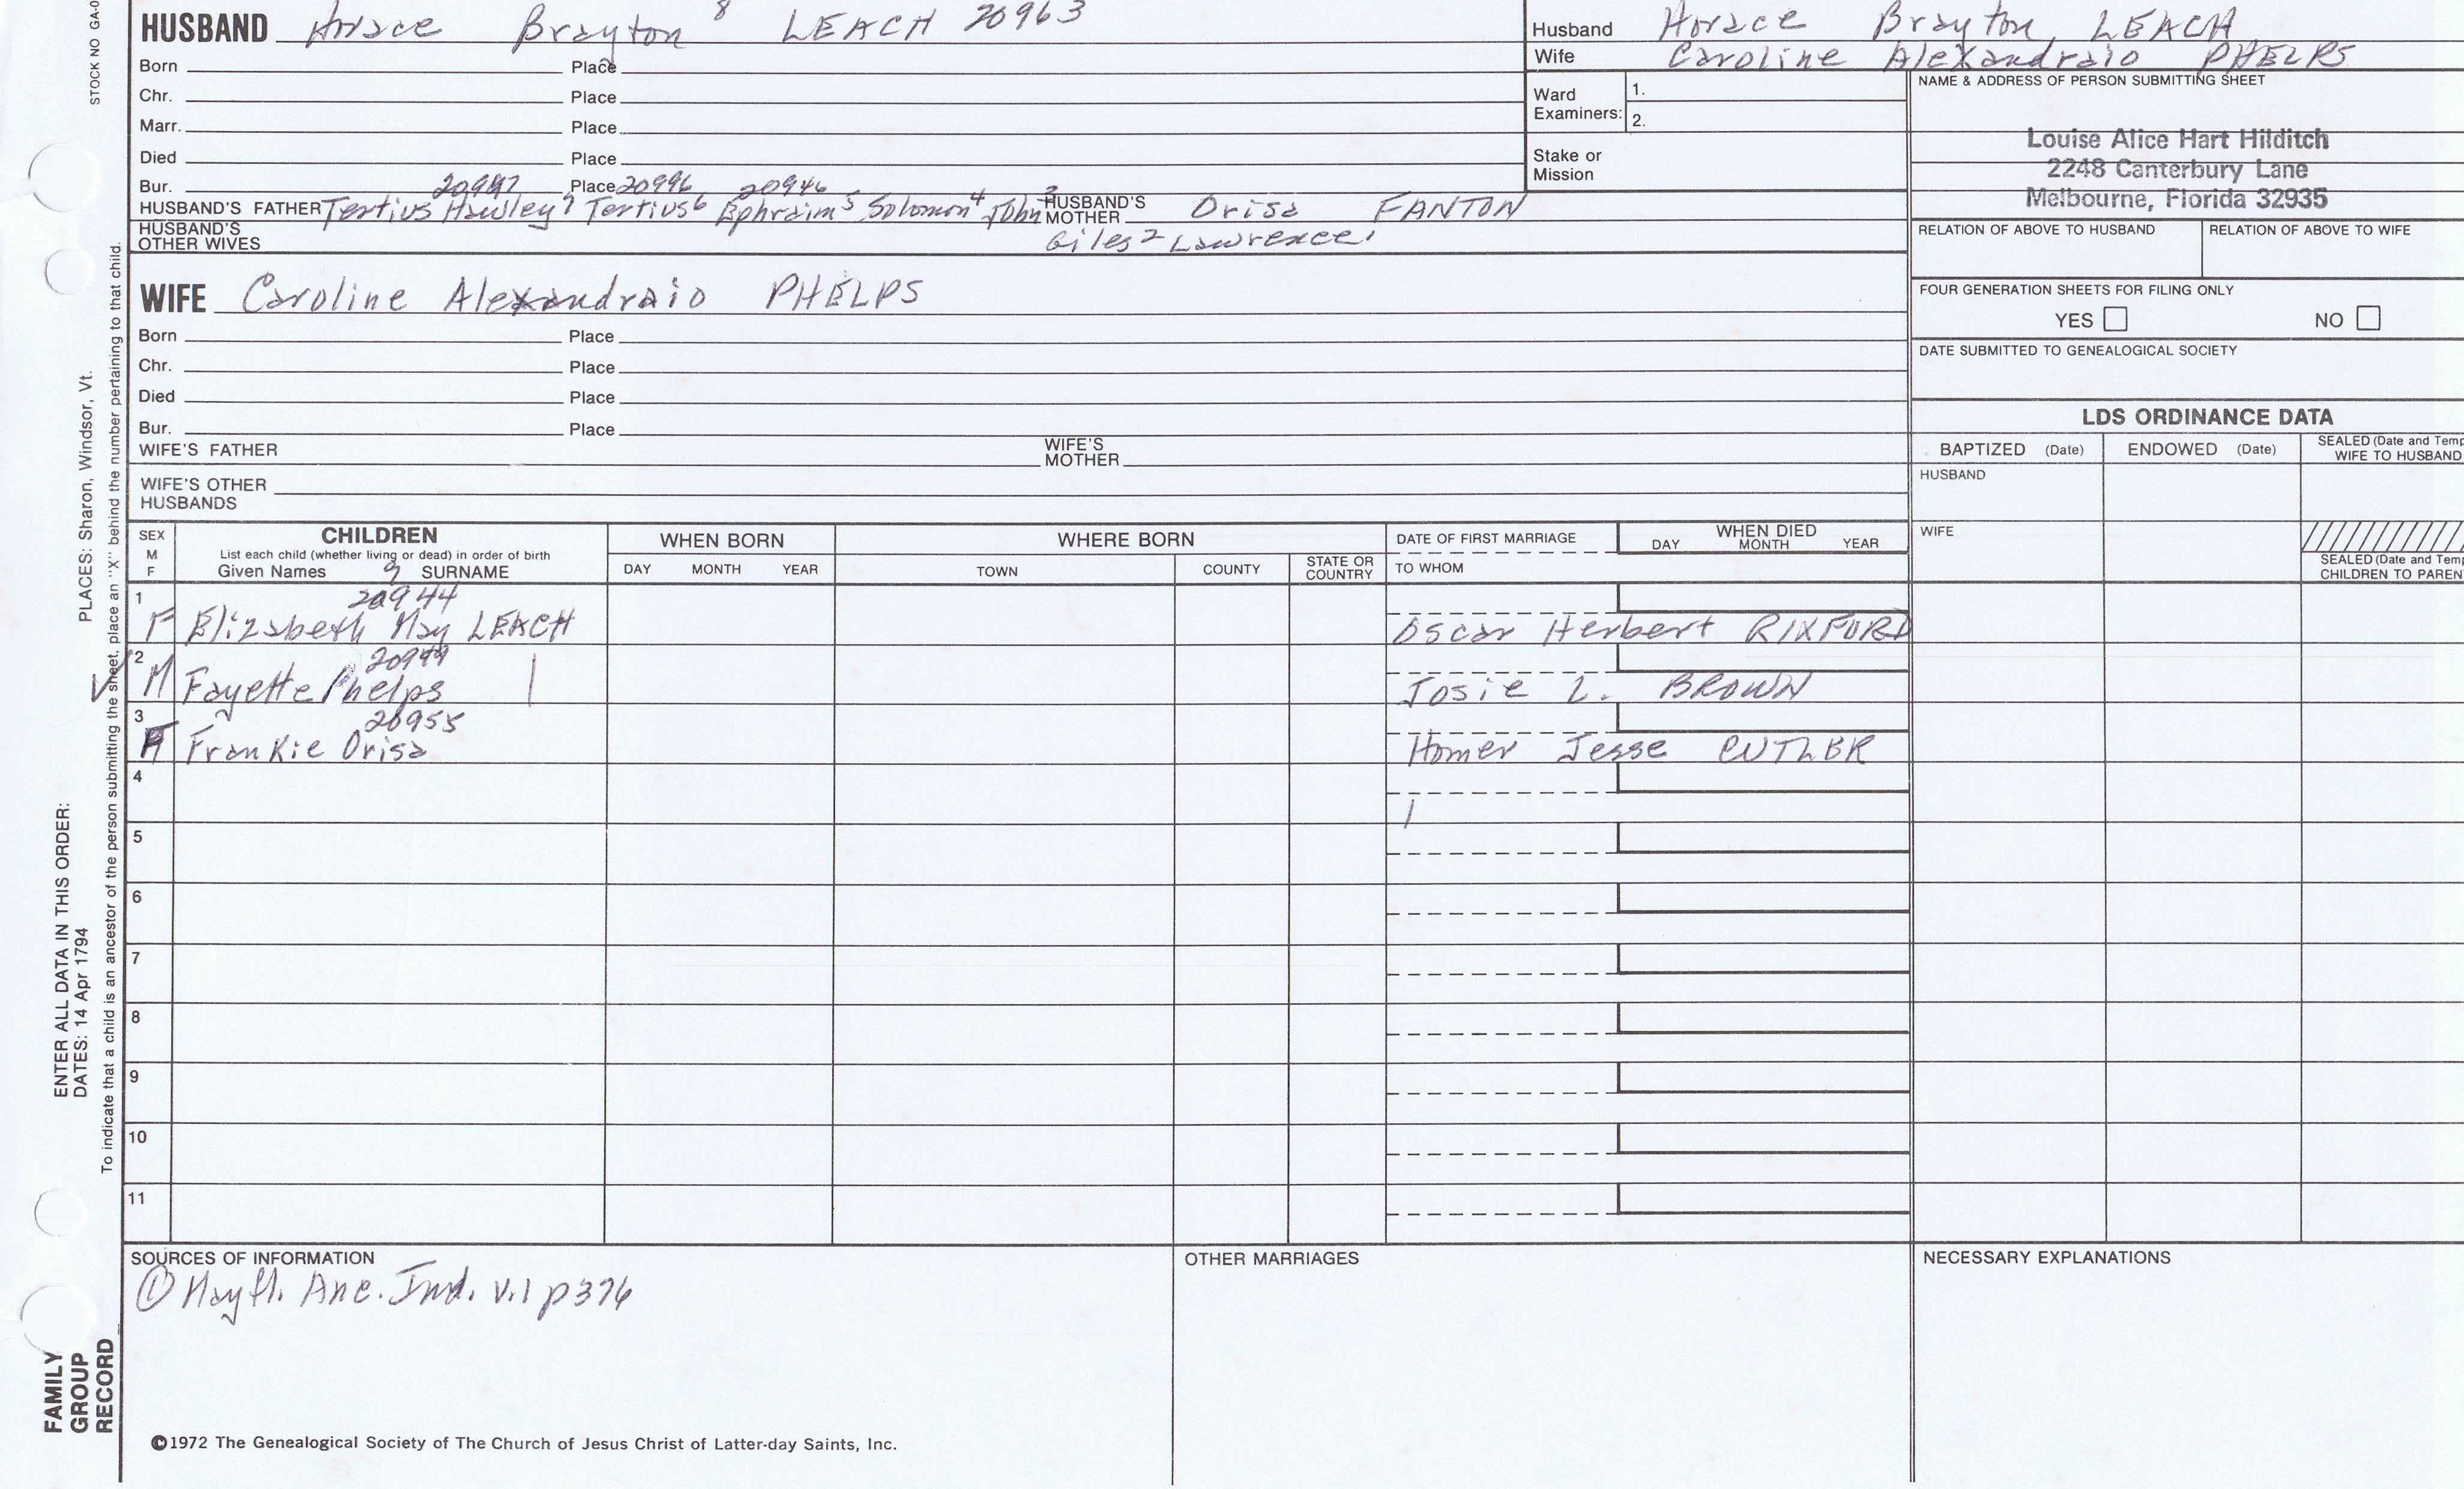 STOCK NO GA-0
HUSBAND Horace Brayton 8 LEACH 20963
Born Place
Chr. Place
Marr. Place
Died Place
Bur. 20947 Place 20996 20946
HUSBAND'S FATHER Tertius Hawley 7 Tertius 6 Ephraim 5 Solomon 4 John 3 HUSBAND'S MOTHER Orisa FANTON
HUSBAND'S OTHER WIVES Giles 2 Lawrence 1
WIFE Caroline Alexandraio PHELPS
Born Place
Chr. Place
Died Place
Bur. Place
WIFE'S FATHER WIFE'S MOTHER
WIFE'S OTHER HUSBANDS
Husband Horace Brayton LEACH
Wife Caroline Alexandraio PHELPS
Ward Examiners: 1.
2.
Stake or Mission
NAME & ADDRESS OF PERSON SUBMITTING SHEET
Louise Alice Hart Hilditch
2248 Canterbury Lane
Melbourne, Florida 32935
RELATION OF ABOVE TO HUSBAND RELATION OF ABOVE TO WIFE
FOUR GENERATION SHEETS FOR FILING ONLY
YES NO
DATE SUBMITTED TO GENEALOGICAL SOCIETY
LDS ORDINANCE DATA
BAPTIZED (Date) ENDOWED (Date) SEALED (Date and Temp
WIFE TO HUSBAND
HUSBAND
WIFE
SEALED (Date and Tem
CHILDREN TO PAREN
SEX M F CHILDREN
List each child (whether living or dead) in order of birth
Given Names 9 SURNAME
WHEN BORN
DAY MONTH YEAR
WHERE BORN
TOWN COUNTY STATE OR COUNTRY
DATE OF FIRST MARRIAGE
TO WHOM
WHEN DIED
DAY MONTH YEAR
1 20944
F Elizabeth May LEACH Oscar Herbert RIXFORD
2 20949
M Fayette Phelps Josie L. BROWN
3 20955
F Frankie Orisa Homer Jesse CUTLER
4
5
6
7
8
9
10
11
SOURCES OF INFORMATION
① Mayfl. Anc. Ind. v.1 p376
OTHER MARRIAGES
NECESSARY EXPLANATIONS
©1972 The Genealogical Society of The Church of Jesus Christ of Latter-day Saints, Inc.
FAMILY
GROUP
RECORD
ENTER ALL DATA IN THIS ORDER:
DATES: 14 Apr 1794 PLACES: Sharon, Windsor, Vt.
To indicate that a child is an ancestor of the person submitting the sheet, place an "X" behind the number pertaining to that child.